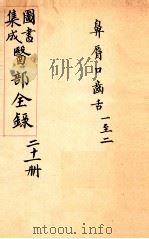 鼻唇口齒舌 一至二
圖書集成醫部全錄
二十一册